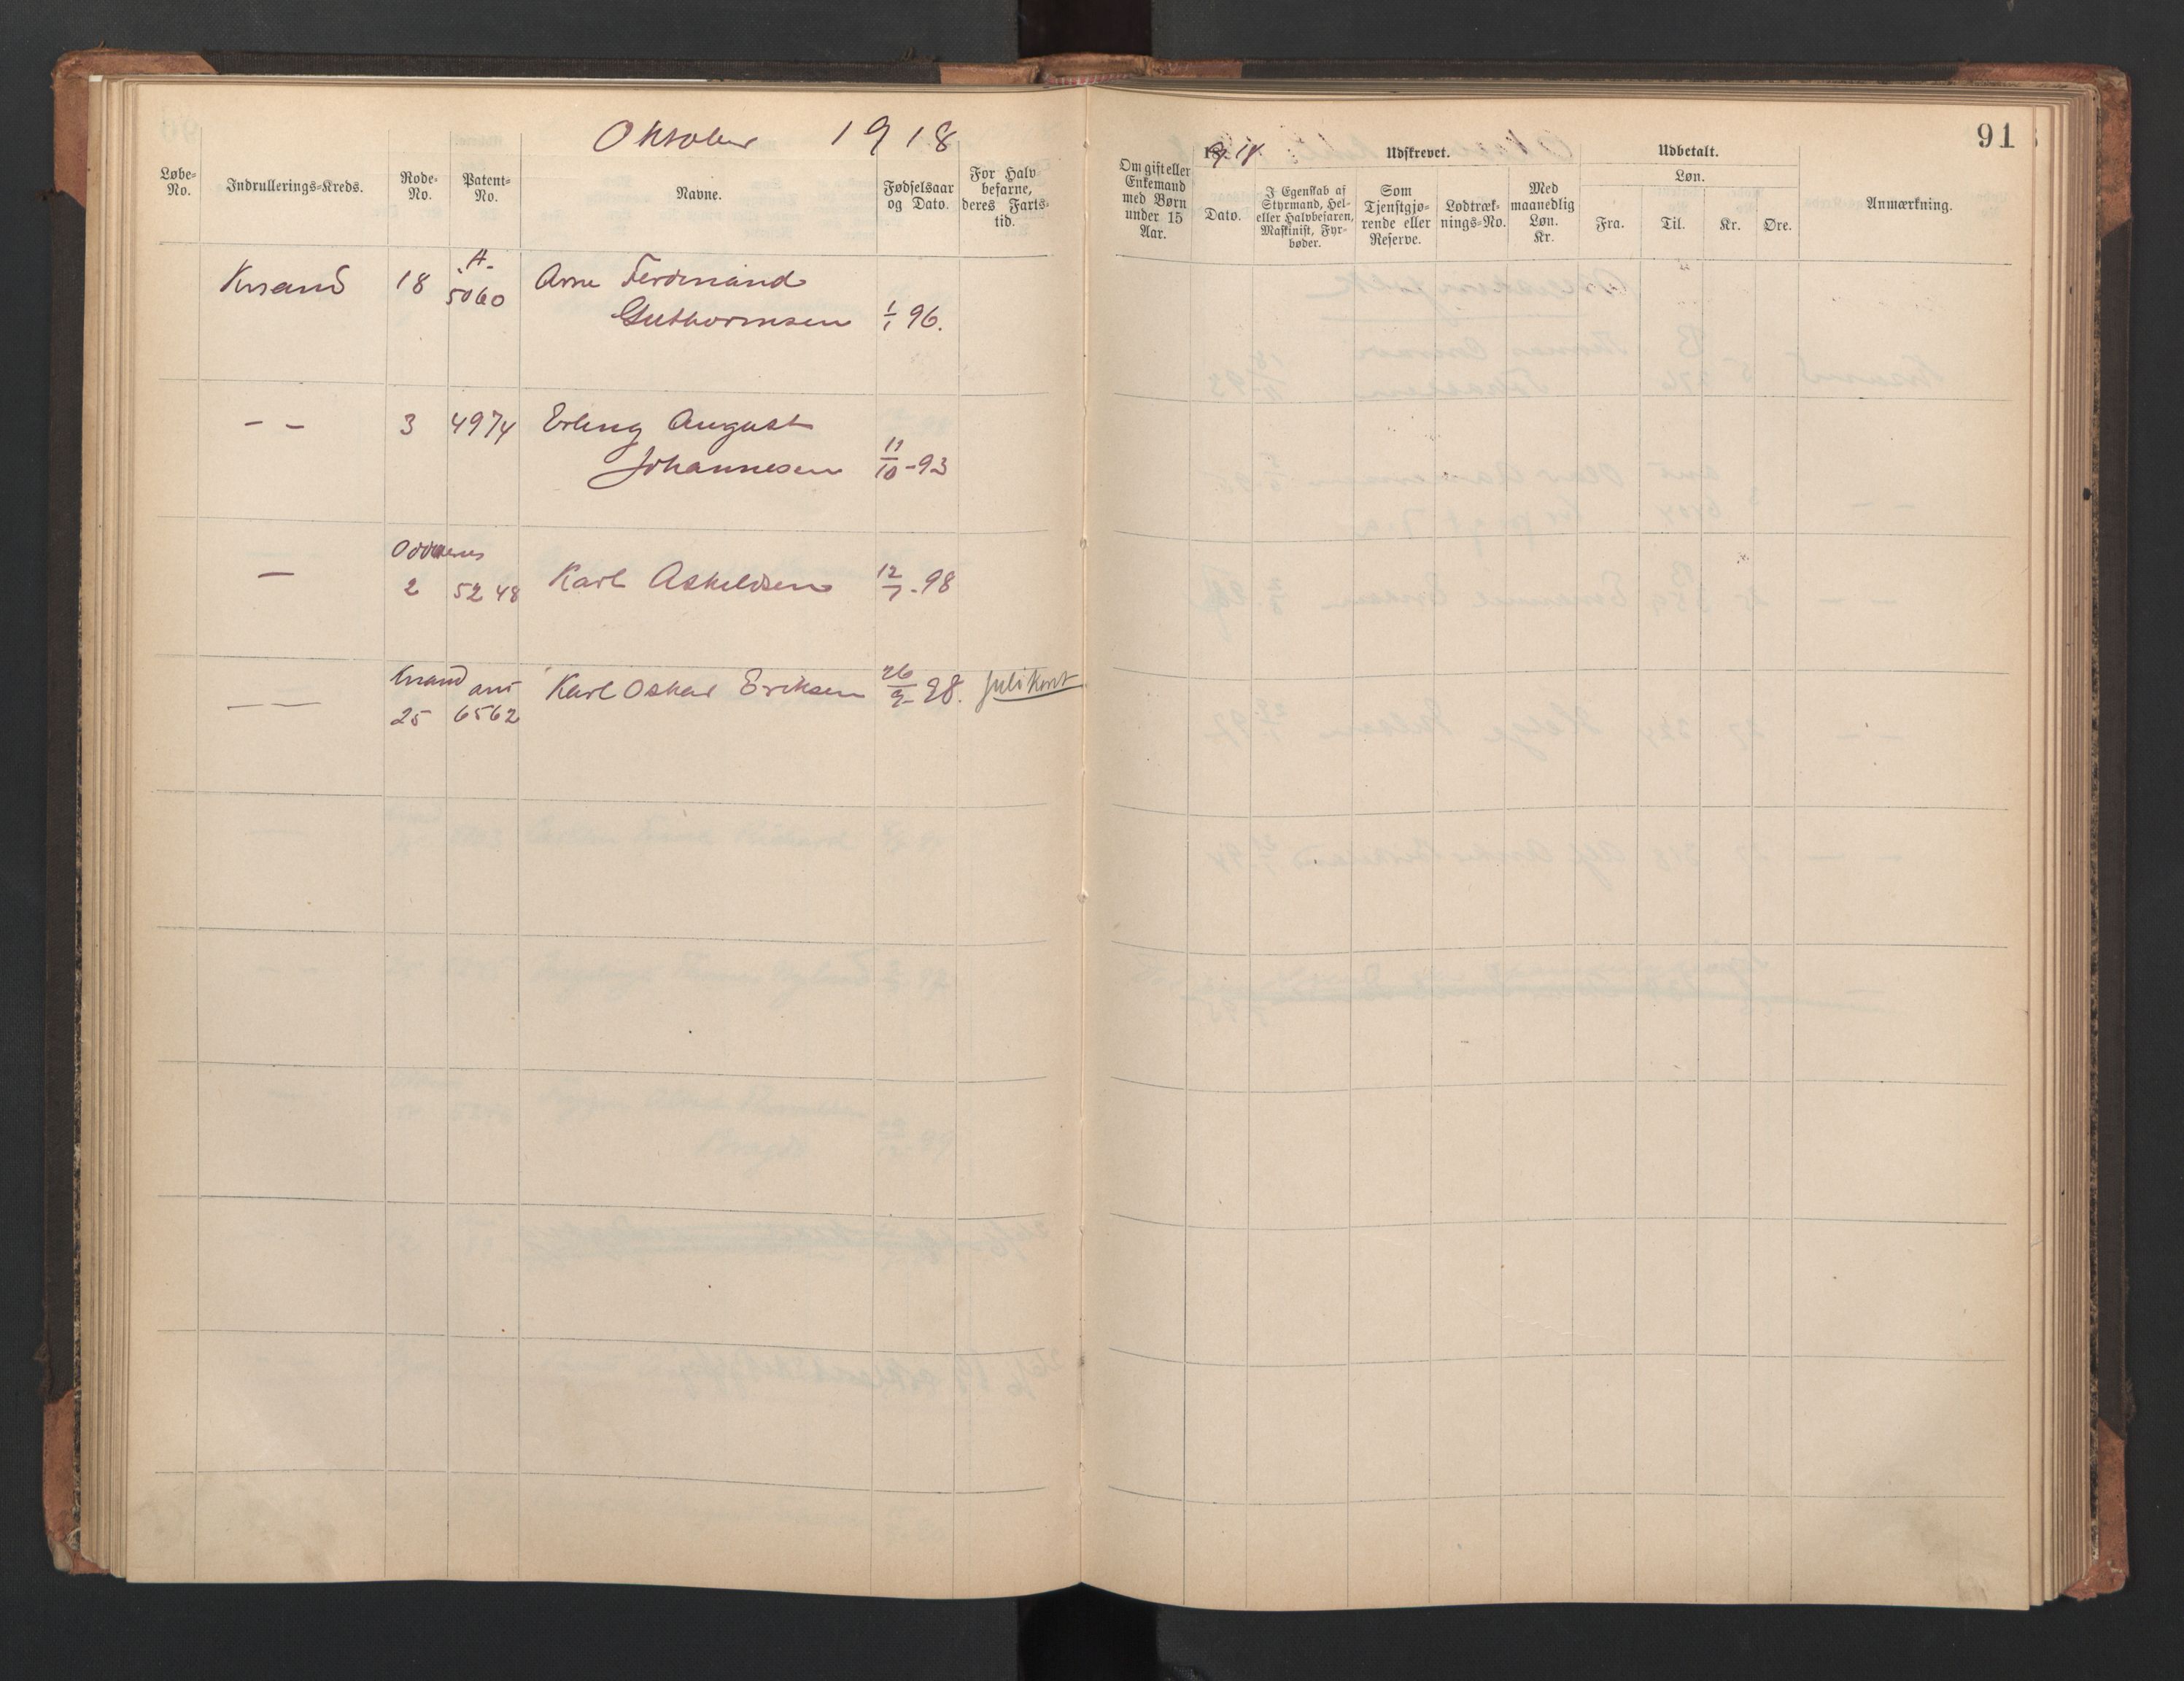 Oktober 1918
Løbe-No.
Indrullerings-Kreds.
Rode-No.
Patent-No.
Navne.
Fødselsaar og Dato.
For Halvbefarne, deres Fartstid.
Krsand 18 A. 5060 Arne Ferdinand
Guthormsen 1/1 96.
— — 3 4974 Erling August
Johannesen 11/10-93
— Oddernes
2 5248 Karl Askeldsen 12/7-98
— — Krsand ant
25 6562 Karl Oskar Eriksen 26/9-98. Julikont
91
Om gift eller Enkemand med Børn under 15 Aar.
1918
Udskrevet.
Dato.
I Egenskab af Styrmand, Hel- eller Halvbefaren, Maskinist, Fyrbøder.
Som Tjenstgjørende eller Reserve.
Lodtræknings-No.
Med maanedlig Løn. Kr.
Udbetalt.
Løn.
Fra.
Til.
Kr.
Øre.
Anmærkning.